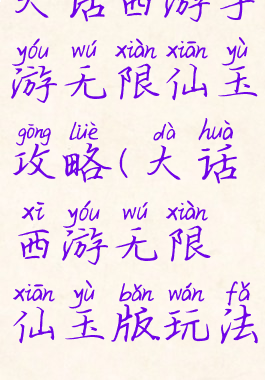 大话西游手
yóu wú xiàn xiān yù
游无限仙玉
gōng lüè dà huà
攻略(大话
xī yóu wú xiàn
西游无限
xiān yù bǎn wán fǎ
仙玉版玩法